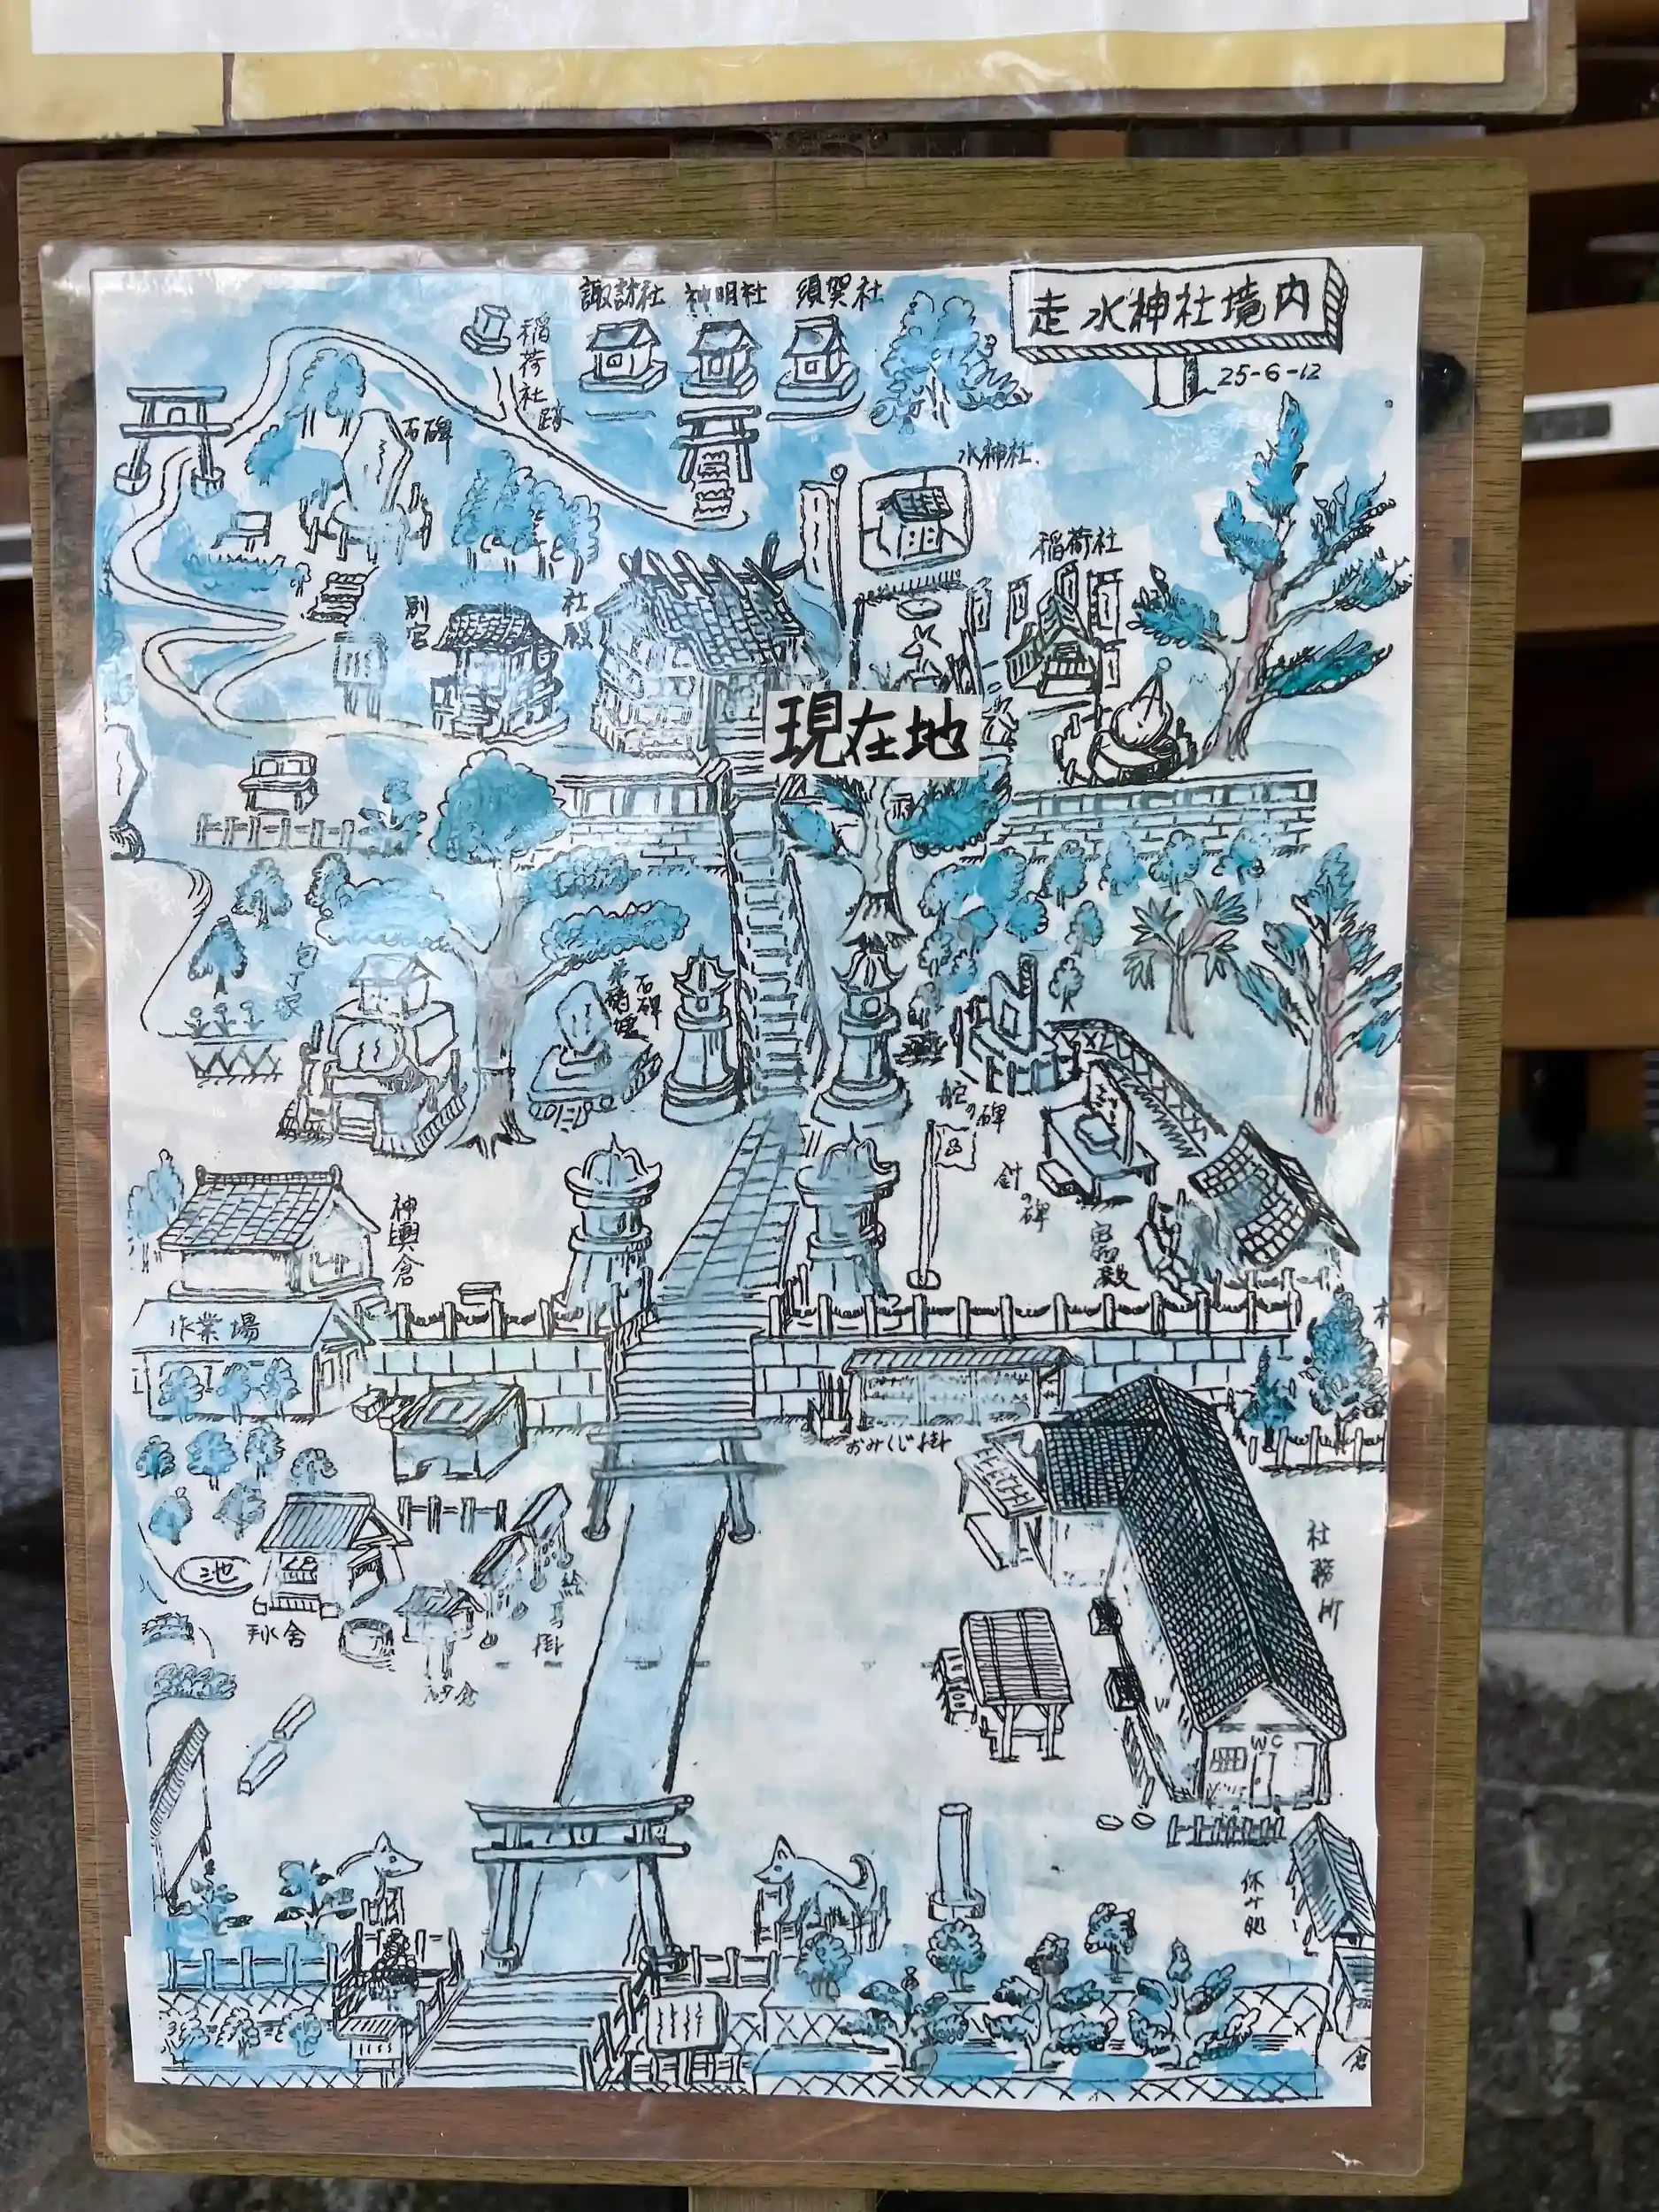 走水神社境内
25-6-12
諏訪社
神明社
須賀社
稲荷社跡
石碑
水神社
稲荷社
別宮
社殿
現在地
包丁塚
石碑
舵の碑
針の碑
神輿倉
作業場
おみくじ掛
社務所
池
手水舎
絵馬掛
WC
休み処
倉